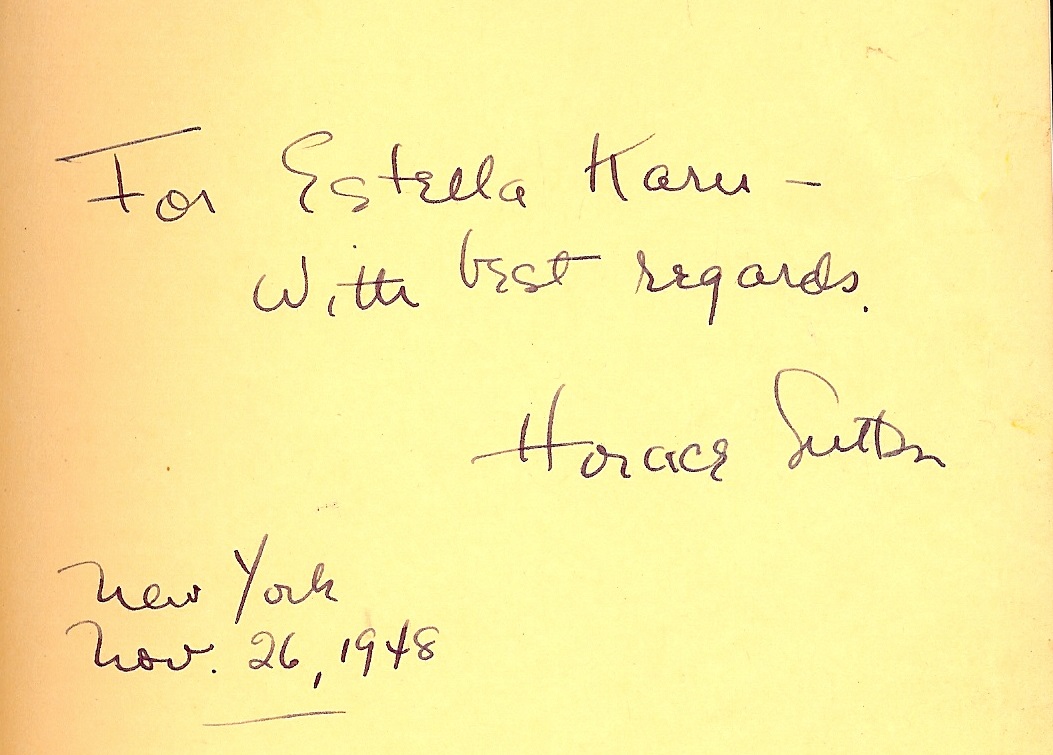 For Estella Karu –
With best regards.
Horace Sutton
New York
Nov. 26, 1948